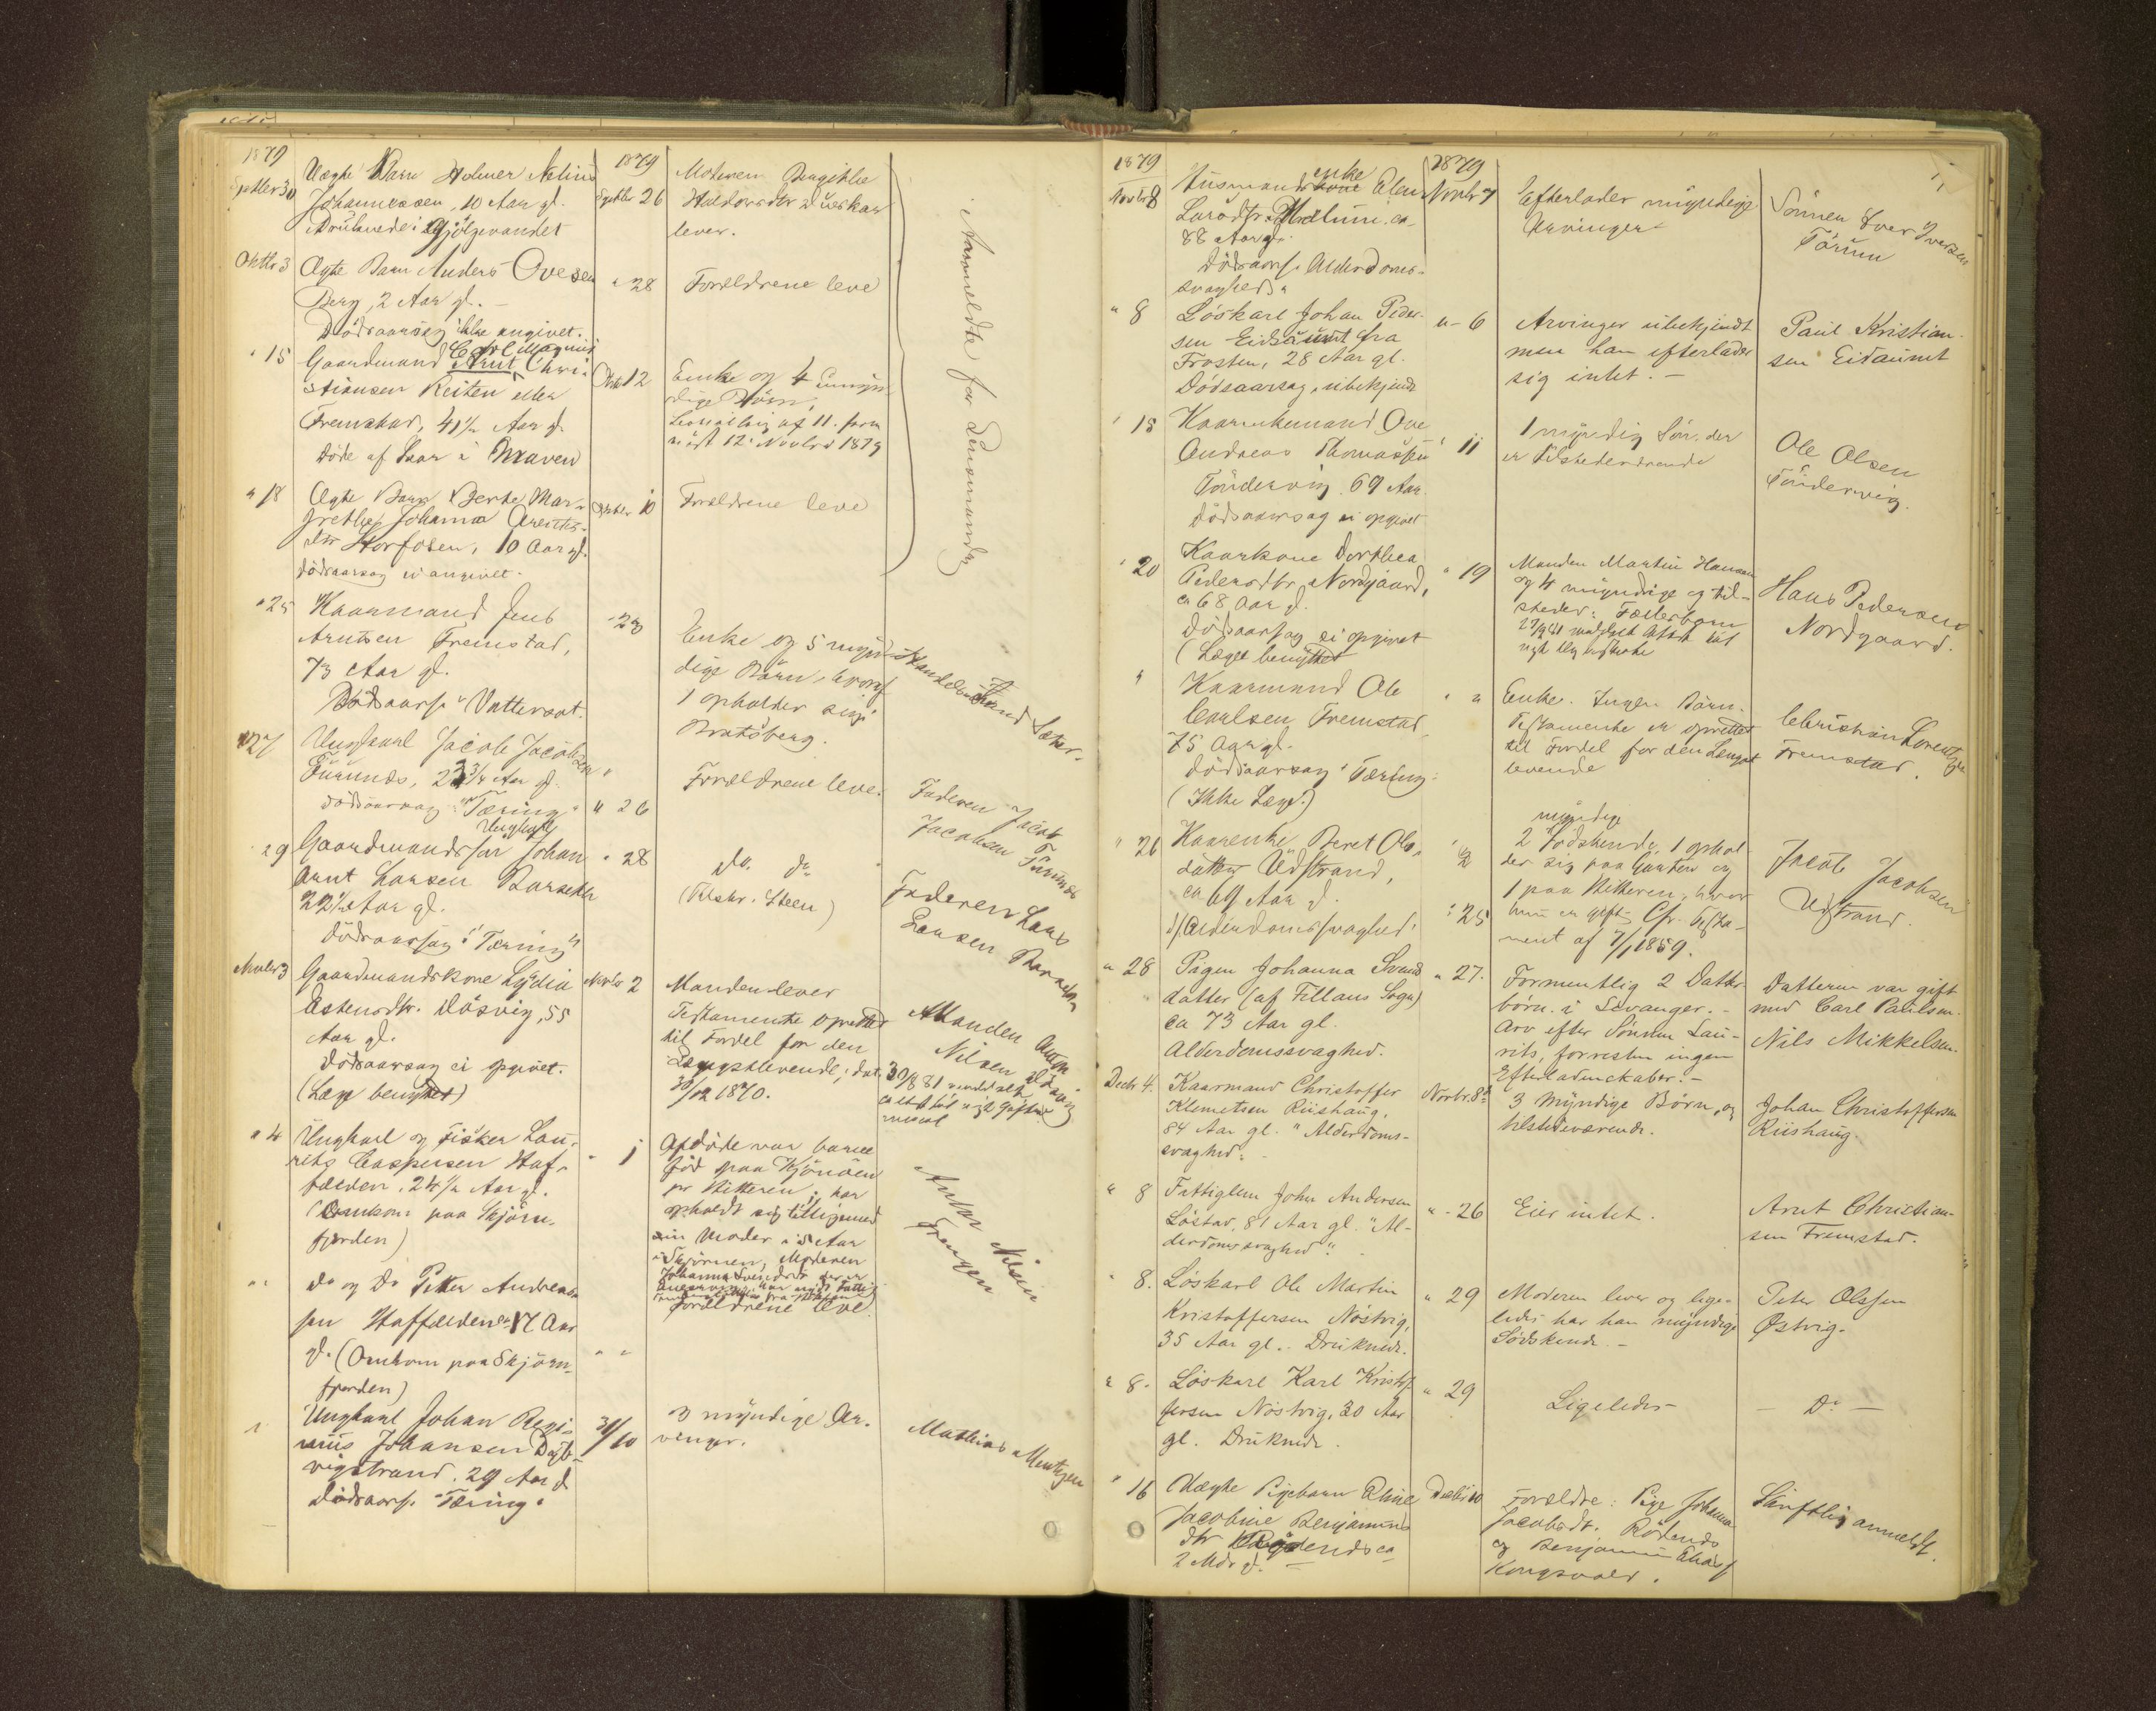 1879
1879
Septbr 30
Uægte Barn Holmer Nelius
Johannessen, 10 Aar gl.
Septbr 26
Moderen
lever.
Oktbr 3
Ægte Barn Anders Ovesen
Berg, 2 Aar gl. -
Dødsaarsag ikke angivet.
" 28
Forældrene leve
Anmeldte for Lensmanden
" 15
Carl Magnus
Gaardmand Arnt Chri-
stiansen Reiten eller
Fremstad, 41½ Aar gl.
Døde af Saar i Maven
Oktbr 12
Enke og 4 umyn-
dige Børn,
12 Novbr 1879
" 18
Ægte Barn Berte Mar-
grethe Johanna Arents-
dtr Storfosen, 10 Aar gl.
Dødsaarsag ei angivet.
Oktbr 10
Forældrene leve
" 25
Kaarmand Jens
Arntsen Fremstad,
73 Aar gl.
Dødsaars. "Vattersot.
" 23
Enke og 5 myn-
dige Børn, hvoraf
1 opholder sig i
Bratsberg.
" 27
Ungkarl Jacob Jacobsen
23¾ Aar gl.
Dødsaarsag: "Tæring"
" 26
Forældrene leve.
Faderen Jacob
Jacobsen
29
Ungkarl
Gaardmandssøn Johan
Arnt Larsen
22½ Aar gl.
Dødsaarsag: "Tæring"
" 28
do. do
(Tilskr. Steen)
Faderen Lars
Larsen
Novbr 3
Gaardmandskone Lydia
Estensdtr. Døsvig, 55
Aar gl.
Dødsaarsag ei opgivet.
(Læge benyttet)
Novbr 2
Manden lever
Testamente oprettet
til Fordel for den
Længstlevende; dat.
30/12 1870.
Manden Anton
Nilsen Døsvig
" 4
Ungkarl og Fisker Lau-
rits Caspersen Haf-
fælden, 24½ Aar gl.
(Omkom paa Skjørn-
fjorden)
" 1
Afdøde var barne
fød paa
pr Hitteren; har
opholdt sig tilligemed
sin Moder i Aar
i Skjørnen, Moderen
Johanna Svendsdtr
Forældrene leve.
Anton Nilsen
" "
do og do Peter Andreas-
sen Haffælden 17 Aar
gl. (Omkom paa Skjørn-
fjorden)
" "
Ungkarl Johan Regi-
nius Johansen
vigstrand. 29 Aar gl
Dødsaars. "Tæring"
31/10
3 myndige Ar-
vinger.
Mathias Mentzen
1879
1879
Novbr 8
enke
Husmandskone Elen
Larsdtr. ca
88 Aar gl.
Dødsaars. Alderdoms-
svaghed"
Novbr 7
Efterlader myndige
Arvinger
Sønnen Iver Iversen
" 8
Løskarl Johan Peder-
sen Eidsaunet fra
Frosten, 28 Aar gl.
Dødsaarsag ubekjendt
" 6
Arvinger ubekjendt
men han efterlader
sig intet. -
Paul Kristian-
sen Eidaunet
" 15
Kaarenkemand Ove
Andreas Thomassen
Tøndervig 69 Aar
Dødsaarsag ei opgivet
" 11
1 myndig Søn, der
er tilstedeværende
Ole Olsen
Tøndervig.
" 20
Kaarkone Dorthea
Pedersdtr Nordgaard,
ca 68 Aar gl.
Dødsaarsag ei opgivet
(Læge benyttet
" 19
Manden Martin Hansen
og 4 myndige og til-
steder: Fællesbørn
Hans Pedersen
Nordgaard.
"
Kaarmand Ole
Carlsen Fremstad,
75 Aar gl.
Dødsaarsag: Tæring.
(Ikke Læge.)
" "
Enke. Ingen Børn.
Testamente er oprettet
til Fordel for den Længst
levende
Christian Lorentzen
Fremstad.
" 26
Kaarenke Beret Ols-
datter Udstrand,
ca 69 Aar gl.
Alderdomssvaghed.
" 25
myndige
2 Sødskende, 1 ophol-
der sig paa og
1 paa Hitteren, hvor
hun er gift. Cfr. Testa-
ment af 7/1 1859.
Jacob Jacobsen
Udstrand.
" 28
Pigen Johanna Svends
datter (af Fillans Sogn)
ca 73 Aar gl.
Alderdomssvaghed.
" 27.
Formentlig 2 Datter-
børn i Levanger. -
Arv efter Sønnen Lau-
rits, forresten ingen
Efterladenskaber. -
Datteren var gift
med Carl Paulsen.
Nils Mikkelsen.
Decbr 4.
Kaarmand Christoffer
Klemetsen Riishaug,
84 Aar gl. "Alderdoms-
svaghed".
Novbr. 8
3 Myndige Børn, og
tilstedeværende.
Johan Christoffersen
Riishaug.
" 8
Fattiglem John Andersen
Løstad, 81 Aar gl. "Al-
derdomssvaghed".
" 26
Eier intet.
Arnt Christian-
sen Fremstad.
" 8.
Løskarl Ole Martin
Kristoffersen Nøstvig,
35 Aar gl. Druknede.
" 29
Moderen lever og lige-
ledes har han myndige
Sødskende. -
Peter Olsen
Østvig.
" 8.
Løskarl Karl Kristof-
fersen Nøstvig, 30 Aar
gl. Druknede.
" 29
Ligeledes
- Do -
" 16
Uægte Pigebarn Eline
Jacobine Benjamins
dtr ca
2 Mdr gl. -
Decbr 10
Forældre: Pige Johanna
Jacobsdtr.
og Benjamin Elias
Kongsvold.
Skriftlig anmeldt.